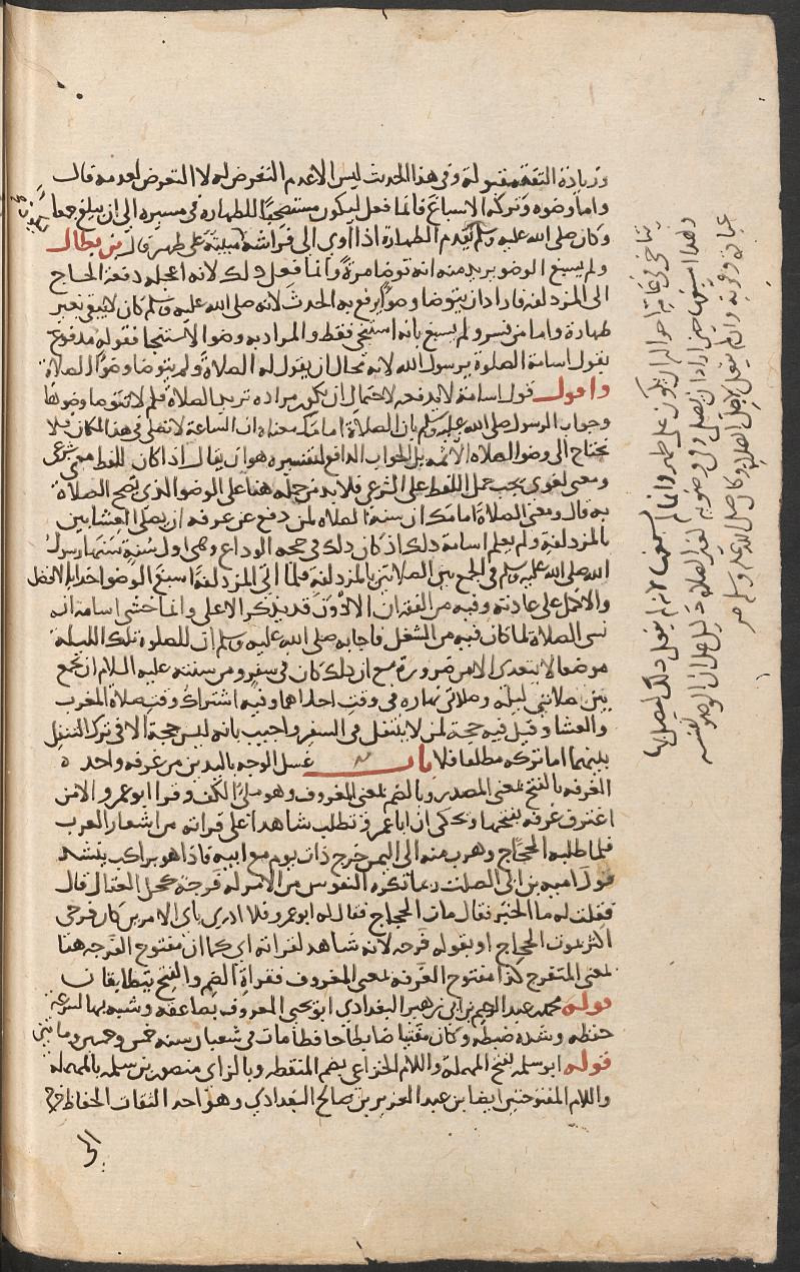 وزيادة الثقة مقبولة وفي هذا الحدث ليس الا عدم التعرض له لا التعرض لعدمه قال
واما وضوه وتركه الاسباغ فانما فعل ليكون مستصحبا للطهارة في مسيره الى ان يبلغ جمعا
وكان صلى الله عليه وسلم يقدم الطهارة اذا أوى الى فراشه مبيته على طهر قال بن بطال
ولم يسبغ الوضو يريد منه انه توضا مرة وانما فعل ذلك لانه اعجله دفعة الحاج
الى المزدلفة فاراد ان يتوضا وضوا يرفع به الحدث لانه صلى الله عليه وسلم كان لا يبقى بغير
طهارة واما من فسر ولم يسبغ بانه استنجى فقط والمراد به وضو الاستنجا فقوله مدفوع
بقول اسامة الصلوة يرسول الله لانه محال ان يقول له الصلاة ولم يتوضا وضو الصلاة
واقول قول اسامة لا يدفعه لاحتمال ان يكون مراده تريد الصلاة فلم لا تتوضا وضوها
وجواب الرسول صلى الله عليه وسلم بان الصلاة امامك معناه ان الساعة لا تصلى في هذا المكان فلا
تحتاج الى وضو الصلاة الا ثمه بل الجواب الدافع لتفسيره هو ان يقال اذا كان للفظ معنى شرعي
ومعنى لغوي يجب حمل اللفظ على الشرعي فلا بد من حمله هنا على الوضو الذي تصح الصلاة
به قال ومعنى الصلاة امامك ان سنة الصلاة لمن دفع من عرفه ان يصلى العشاين
بالمزدلفة ولم يعلم اسامة ذلك اذ كان ذلك في حجة الوداع وهي اول سنة سنها رسول
الله صلى الله عليه وسلم في الجمع بين الصلاتين بالمزدلفة فلما اتى المزدلفة اسبغ الوضو اخذا بالافضل
والاكمل على عادته وفيه من الفقه ان الادون قد يذكر الاعلى وانما خشى اسامة انه
نسى الصلاة لما كان فيه من الشغل فاجابه صلى الله عليه وسلم ان للصلوة تلك الليلة
موضعا لا يتعدى الا من ضرورة مع ان ذلك كان في سفر ومن سنته عليه السلام ان يجمع
بين صلاتي ليله وصلاتي نهاره في وقت احداهما وفيه اشتراك وقت صلاة المغرب
والعشا وقيل فيه حجة لمن لا يتنفل في السفر واجيب بانه ليس حجة الا في ترك التنفل
بينهما اما تركه مطلقا فلا باب غسل الوجه باليدين من غرفه واحده
الغرفه بالفتح بمعنى المصدر وبالضم بمعنى المغروف وهو ملئ الكف وقرا ابو عمرو الا من
اغترف غرفه بفتحها وحكى ان ابا عمرو تطلب شاهدا على قراته من اشعار العرب
فلما طلبه الحجاج وهرب منه الى اليمن خرج ذات يوم مع ابيه فاذا هو براكب ينشد
قول اميه بن ابى الصلت ربما تكره النفوس من الامر له فرجة كحل العقال قال
فقلت له ما الخبر فقال مات الحجاج فقال له ابو عمرو فلا ادري باي الامرين كان فرحى
اكثر بموت الحجاج او بقوله فرجه لانه شاهد لقراته اي كما ان مفتوح الفرجه هنا
بمعنى المتفرج كذا مفتوح الغرفه بمعنى المغروف فقراة الضم والفتح يتطابقان
قوله محمد بن عبد الرحيم بن ابى زهير البغدادي ابو يحيى المعروف بصاعقه وشبه بها لسرعة
حفظه وشده ضبطه وكان متقنا ضابطا حافظا مات في شعبان سنه خمس وخمسين ومائتين
قوله ابو سلمه بفتح المهملة واللام الخزاعي بضم المنقطه وبالزاى منصور بن سلمه بالمهملة
واللام المفتوحتين ايضا بن عبد العزيز بن صالح البغدادي وهو احد الثقات الحفاظ خرج
الى